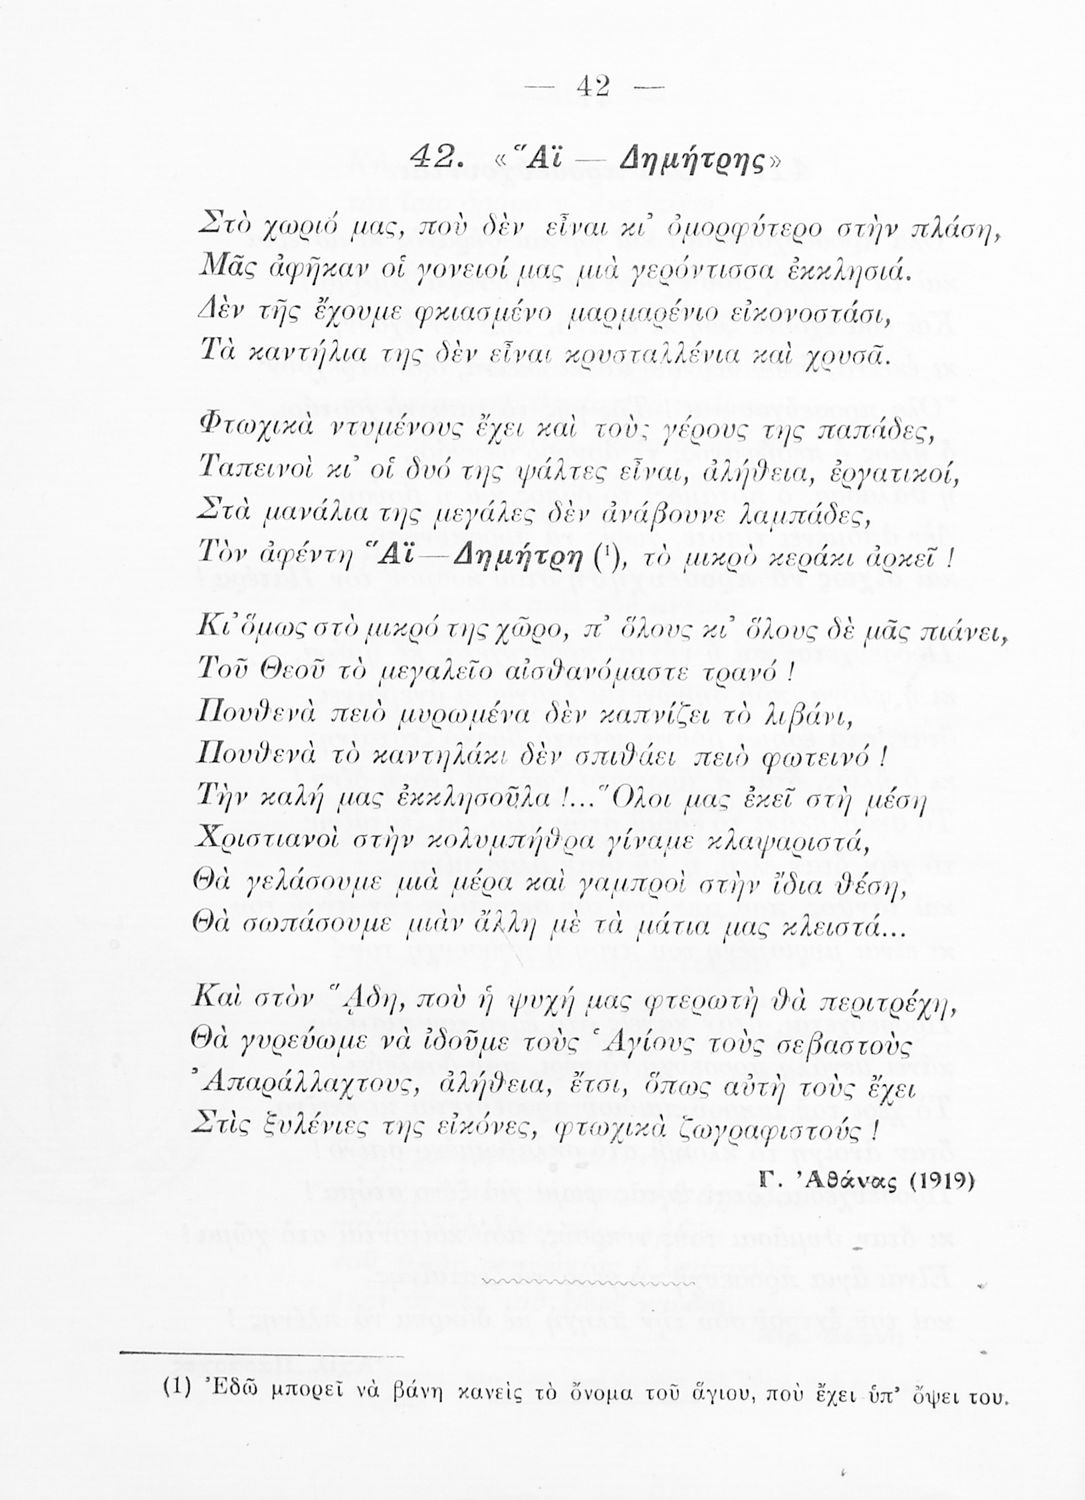 — 42 —
42. «Ἅϊ — Δημήτρης»
Στὸ χωριό μας, ποὺ δὲν εἶναι κι᾽ ὀμορφύτερο στὴν πλάση,
Μᾶς ἀφῆκαν οἱ γονειοί μας μιὰ γερόντισσα ἐκκλησιά.
Δὲν τῆς ἔχουμε φκιασμένο μαρμαρένιο εἰκονοστάσι,
Τὰ καντήλια της δὲν εἶναι κρυσταλλένια καὶ χρυσᾶ.
Φτωχικὰ ντυμένους ἔχει καὶ τοὺς γέρους της παπάδες,
Ταπεινοὶ κι᾽ οἱ δυό της ψάλτες εἶναι, ἀλήθεια, ἐργατικοί,
Στὰ μανάλια της μεγάλες δὲν ἀνάβουνε λαμπάδες,
Τὸν ἀφέντη Ἅϊ — Δημήτρη (¹), τὸ μικρὸ κεράκι ἀρκεῖ !
Κι᾽ ὅμως στὸ μικρό της χῶρο, π᾽ ὅλους κι᾽ ὅλους δὲ μᾶς πιάνει,
Τοῦ Θεοῦ τὸ μεγαλεῖο αἰσθανόμαστε τρανό !
Πουθενὰ πειὸ μυρωμένα δὲν καπνίζει τὸ λιβάνι,
Πουθενὰ τὸ καντηλάκι δὲν σπιθάει πειὸ φωτεινό !
Τὴν καλή μας ἐκκλησοῦλα !... Ὅλοι μας ἐκεῖ στὴ μέση
Χριστιανοὶ στὴν κολυμπήθρα γίναμε κλαψαριστά,
Θὰ γελάσουμε μιὰ μέρα καὶ γαμπροὶ στὴν ἴδια θέση,
Θὰ σωπάσουμε μιὰν ἄλλη μὲ τὰ μάτια μας κλειστά...
Καὶ στὸν ᾍδη, ποὺ ἡ ψυχή μας φτερωτὴ θὰ περιτρέχῃ,
Θὰ γυρεύωμε νὰ ἰδοῦμε τοὺς Ἁγίους τοὺς σεβαστοὺς
Ἀπαράλλαχτους, ἀλήθεια, ἔτσι, ὅπως αὐτὴ τοὺς ἔχει
Στὶς ξυλένιες της εἰκόνες, φτωχικὰ ζωγραφιστούς !
Γ. Ἀθάνας (1919)
(1) Ἐδῶ μπορεῖ νὰ βάνη κανεὶς τὸ ὄνομα τοῦ ἅγιου, ποὺ ἔχει ὑπ᾽ ὄψει του.